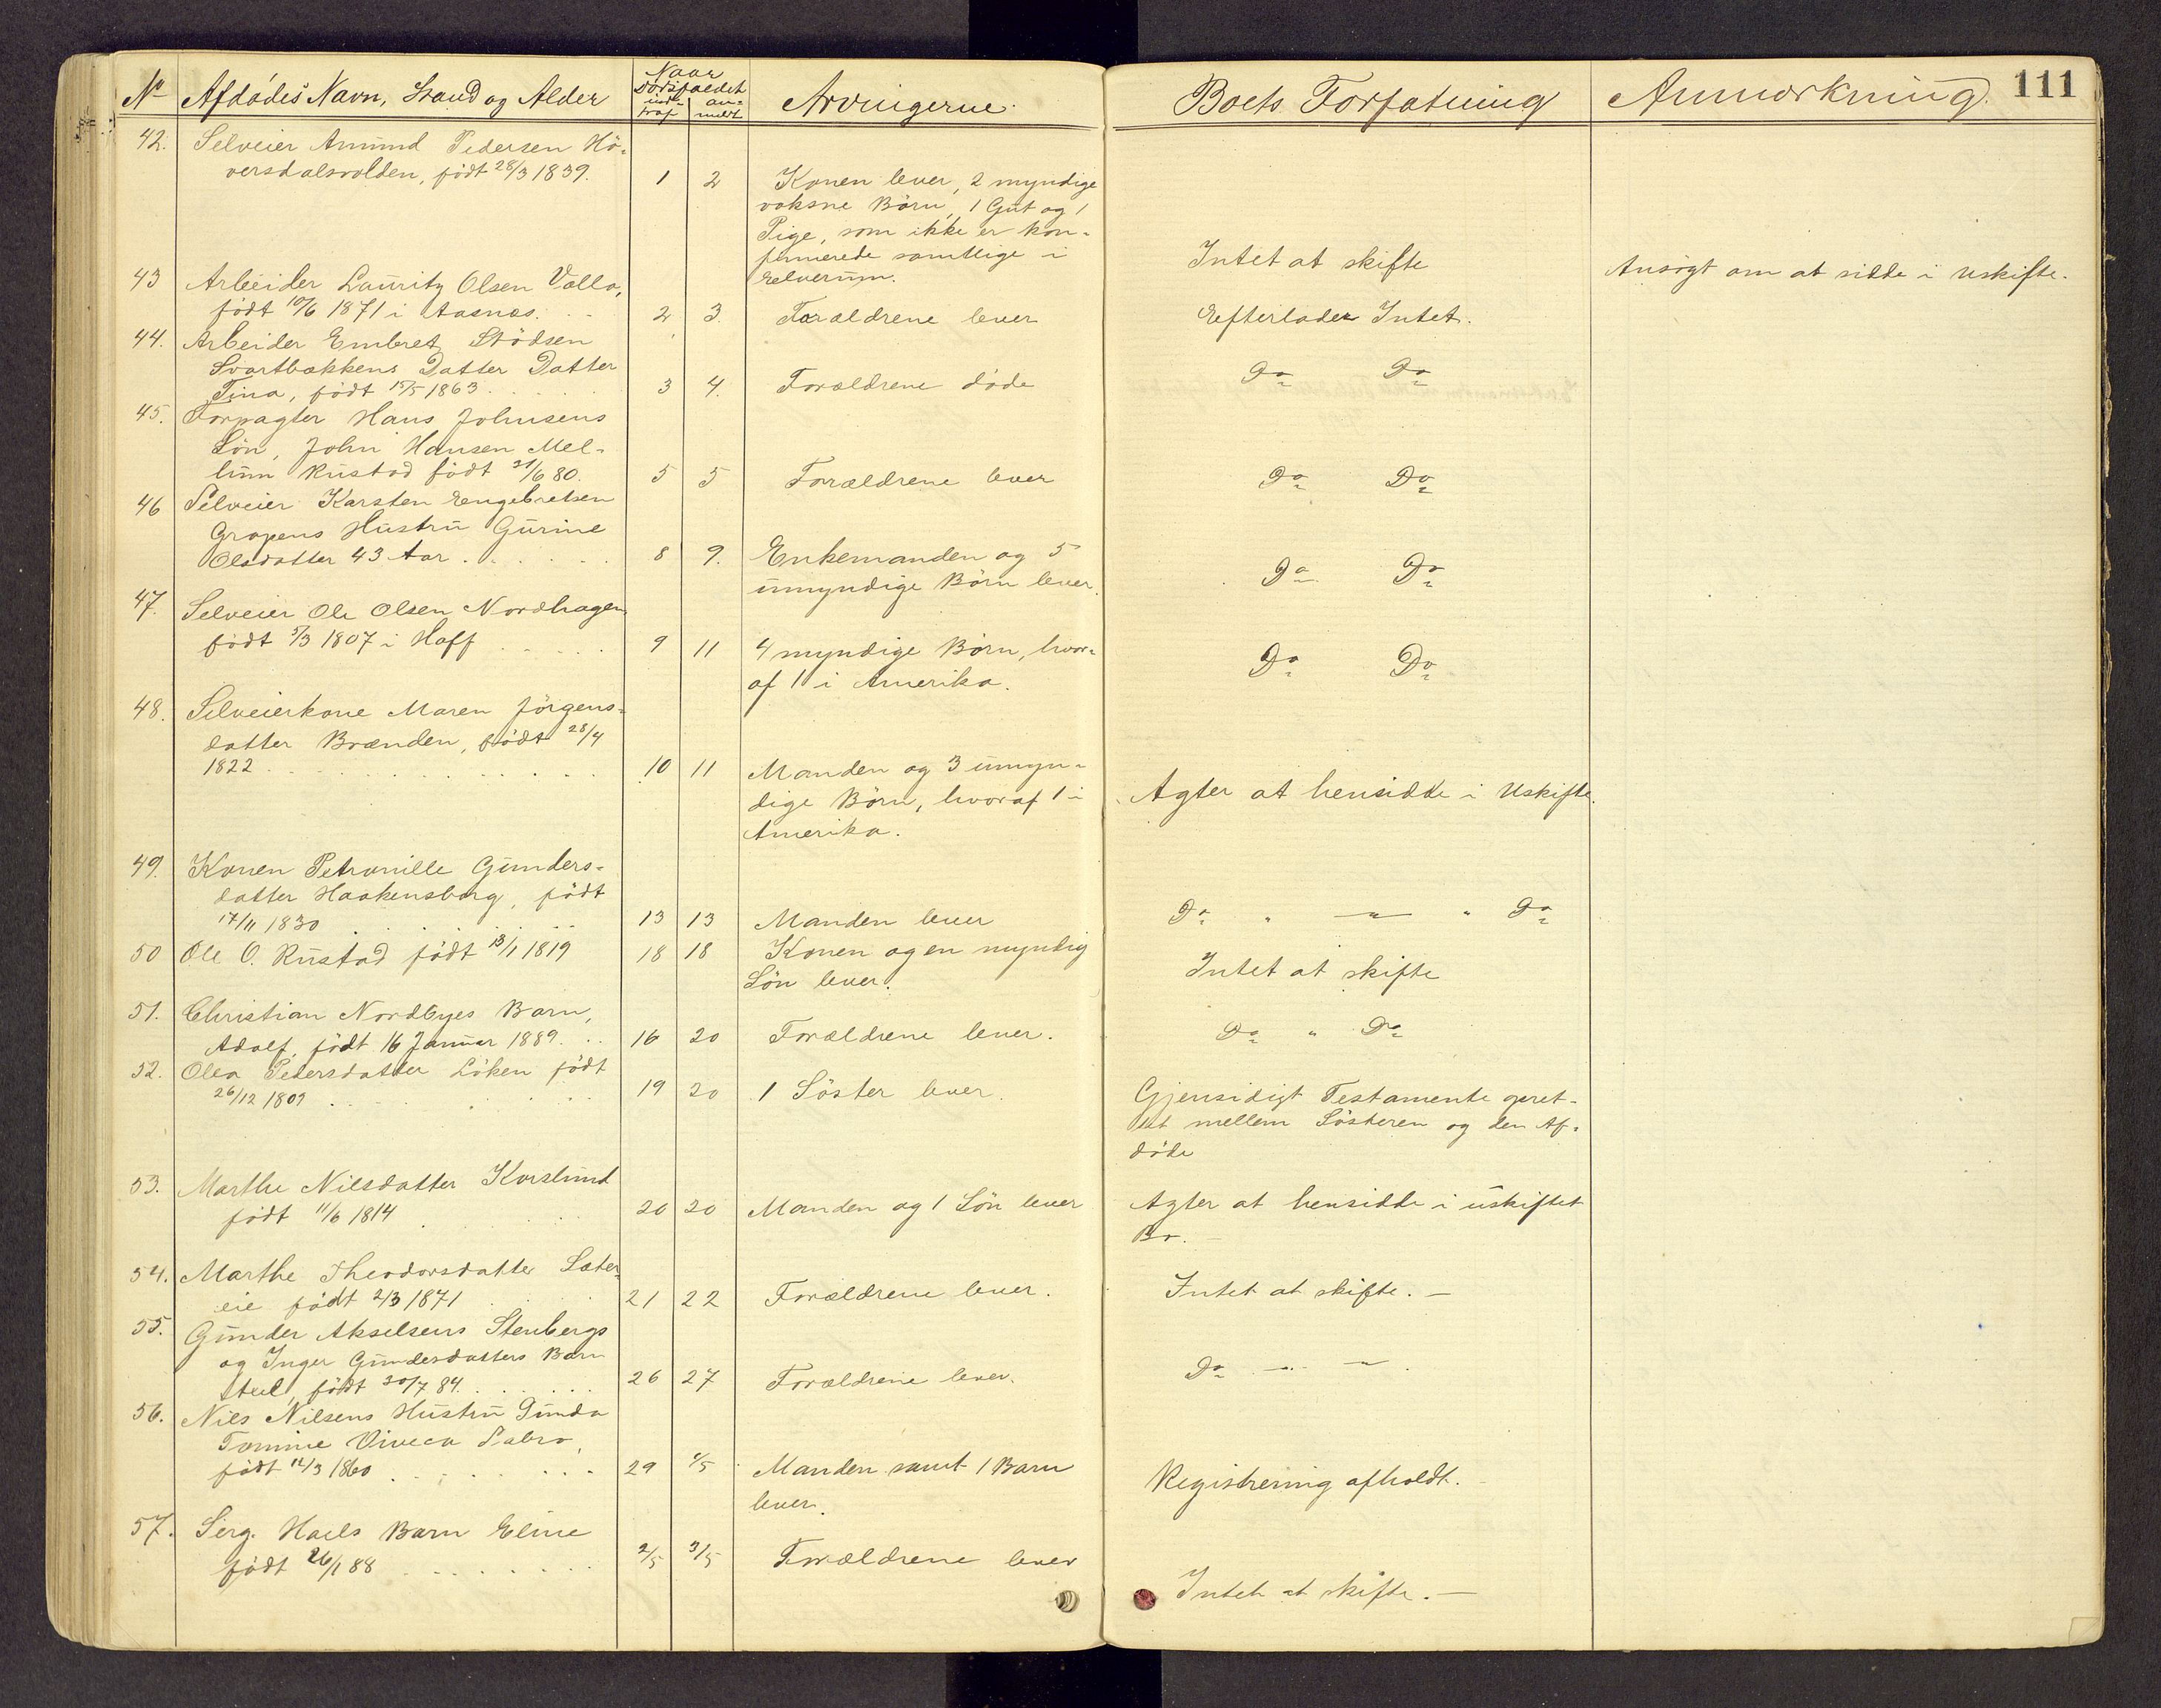 No Afdødes Navn, Stand og Alder Naar Dødsfaldet indtraf anmeldt Arvingerne. Boets Forfatning Anmerkning. 111
42. Selveier Amund Pedersen Hö-
versdalsvolden, födt 28/3 1839. 1 2 Konen lever, 2 myndige
voksne Börn, 1 Gut og 1
Pige, som ikke er kon-
firmerede samtlige i
Elverum. Intet at skifte Ansögt om at sidde i Uskifte.
43 Arbeider Lauritz Olsen Valla,
födt 10/6 1871 i Aasnes. 2 3. Forældrene lever Efterlader Intet.
44. Arbeider Embret Stödsen
Svartbakkens Datter Datter
Tina, födt 15/5 1863 3 4. Forældrene döde Do Do
45. Forpagter Hans Johnsens
Sön, John Hansen Mel-
lum Rustad födt 21/6 80. 5 5 Forældrene lever Do Do
46 Selveier Karsten Engebretsen
Gropens Hustru Gurine
Olsdatter 43 Aar 8 9. Enkemanden og 5
umyndige Börn lever. Do Do
47. Selveier Ole Olsen Nordhagen
födt 5/3 1807 i Hoff 9 11 4 myndige Börn, hvor-
af 1 i Amerika. Do Do
48. Selveierkone Maren Jörgens-
datter Brænden, födt 28/4
1822 10 11 Manden og 3 umyn-
dige Börn, hvoraf 1 i
Amerika. Agter at hensidde i Uskifte.
49. Konen Petronille Gunders-
datter Haakensborg, födt
17/11 1830 13 13 Manden lever Do " — " Do
50 Ole O. Rustad födt 13/1 1819 18 18 Konen og en myndig
Sön lever. Intet at skifte
51. Christian Nordbyes Barn,
Adolf, födt 16 Januar 1889. 16 20 Forældrene lever. Do " Do
52. Olea Pedersdatter Löken födt
26/12 1809 19 20 1 Söster lever. Gjensidigt Testamente opret-
tet mellem Sösteren og den Af-
döde
53. Marthe Nilsdatter Korslund
födt 11/6 1814 20 20 Manden og 1 Sön lever Agter at hensidde i uskiftet
Bo. —
54. Marthe Theodorsdatter Sæter-
eie födt 2/3 1871 21 22 Forældrene lever. Intet at skifte. —
55. Gunder Akselsens Stenbergs
og Inger Gundersdatters Barn
födt 30/7 84. 26 27 Forældrene lever. Do — —
56. Nils Nilsens Hustru Gunda
Tomine Viveca
födt 12/3 1860 29 1/5 Manden samt 1 Barn
lever. Registrering afholdt.
57. Serg. Haels Barn Eline
födt 26/1 88 2/5 3/5 Forældrene lever
Intet at skifte. —